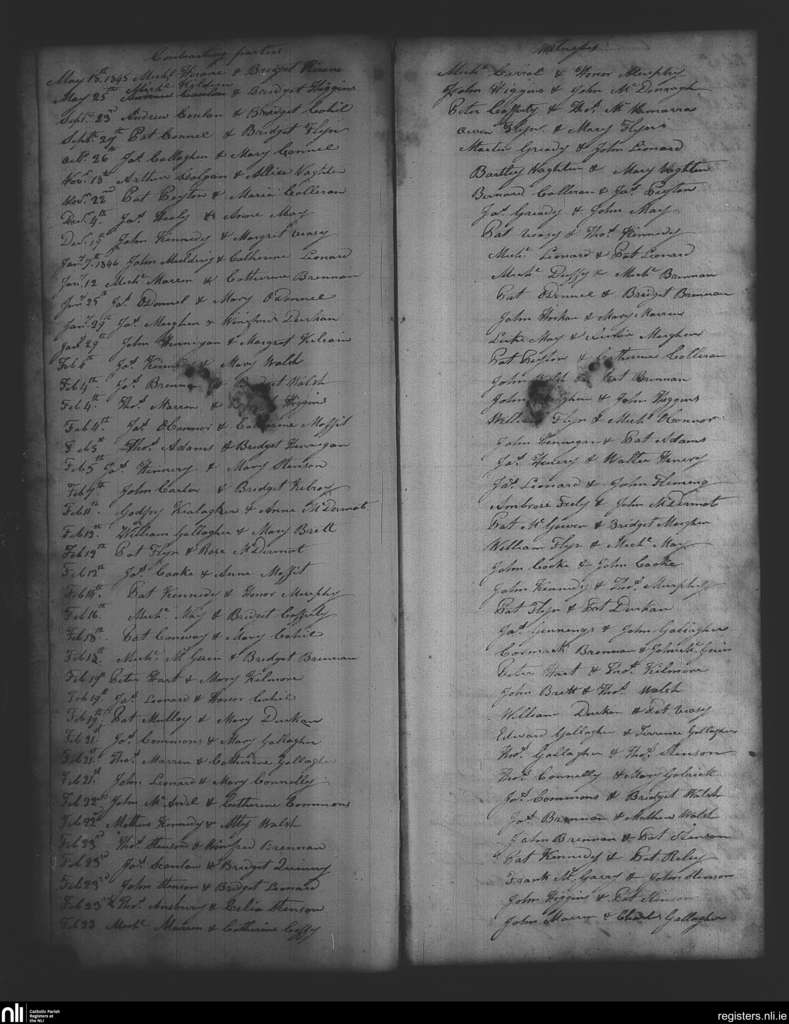 Contracting parties
May 15th 1845 Michl Kirane & Bridget Kirane
May 25th & Bridget Higgins
Septr 23d Andrew Conlon & Bridget Cahil
Septr 29th Pat Connel & Bridget Flyn
octr 26th Jas Callaghan & Mary Connel
Novr 13th Arthur & Allice Naghten
Novr 22nd Pat Peyton & Maria Colleran
Decr 4th Jas Healy & Anne May
Decr 19th John Kennedy & Margret Veasy
Jany 7th 1846 John Muldery & Catherine Lionard
Jany 12 Michl Marren & Catherine Brennan
Jany 25th Jas O'Donnel & Mary O'Donnel
Jany 29th Jas Meighen & Winifred Durkan
Jany 29th John & Margret
Feb 4th Jas & Mary Walsh
Feb 4th Jas Brennan & Bridget Walsh
Feb 4th Thos Marren & Higgins
Feb 4th Jas O'Connor & Catherine Moffit
Feb 5th Thos Adams & Bridget Finnigan
Feb 5th Jas & Mary Henson
Feb 9th John Carlos & Bridget Kilroy
Feb 11th Godfry & Anne McDermot
Feb 12th William Gallagher & Mary Brett
Feb 12th Pat Flyn & Rose McDermot
Feb 12th Jas Cooke & Anne Moffit
Feb 15th Pat Kennedy & Honor Murphy
Feb 16th Michl May & Bridget Cafferty
Feb 18th Pat Conway & Mary Cahil
Feb 18th Michl & Bridget Brennan
Feb 19th Peter Hart & Mary Kilmore
Feb 19th Jas Leonard & Honor Cahil
Feb 19th Pat Mulloy & Mary Durkan
Feb 21st Jas Commons & Mary Gallagher
Feb 21st Thos Marren & Catherine Gallagher
Feb 21st John Leonard & Mary Connelly
Feb 22nd John & Catherine Commons
Feb 22nd Mathew Kennedy & Walsh
Feb 23d Thos Henson & Winifred Brennan
Feb 23d Jas Scanlon & Bridget
Feb 23d John Henson & Bridget Leonard
Feb 23d Thos & Celia Henson
Feb 23 Michl Marren & Catherine
Michl Carrol & Honor Murphy
John Higgins & John McDonagh
Peter Cafferty & Thos
Owen Flyn & Mary Flyn
Martin Gready & John Lionard
Bartley Naghten & Mary Naghten
Bernard Colleran & Jas Peyton
Jas Gready & John May
Pat Veasy & Thos Kennedy
Michl Lionard & Pat Lionard
Michl Duffy & Michl Brennan
Pat O'Donnel & Bridget Brennan
John & Mary Marren
Luke May & Meighen
Pat Peyton & Catherine Colleran
John & Pat Brennan
John & John Higgins
William Flyn & Michl O'Connor
John Finnegan & Pat Adams
Jas Henery & Walter Henery
Jas Leonard & John Fleming
Ambrose Feely & John McDermot
Pat & Bridget Meighen
William Flyn & Michl May
John Cooke & John Cooke
John Kennedy & Thos Murphy
Pat Flyn & Pat Durkan
Jas Jennings & John Gallagher
Brennan & John
Peter Hart & Thos Kilmore
John Brett & Thos Walsh
William Durkan & Pat Veasy
Edward Gallagher & Terence Gallagher
Thos Gallagher & Thos Henson
Thos Connelly & Mary
Jas Commons & Bridget Walsh
Jas Brennan & Mathew Walsh
John Brennan & Pat Henson
Pat Kennedy & Pat
Frank & John Henson
John Higgins & Pat
John & Charles Gallagher
nli
Catholic Parish
Registers at
the NLI
registers.nli.ie